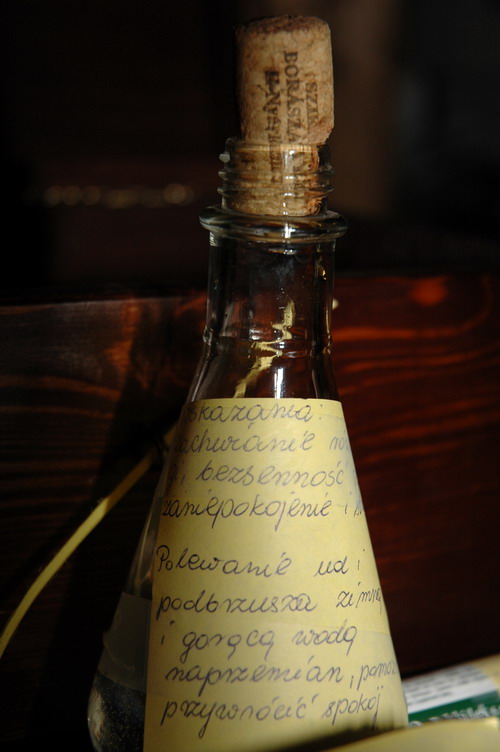 SZIK
BORÁSZA
skazania:
achwianie
i, bezsenność
zaniepokojenie i
Polewanie ud i
podbrzusza zimną
i gorącą wodą
naprzemian, pomo
przywrócić spokój